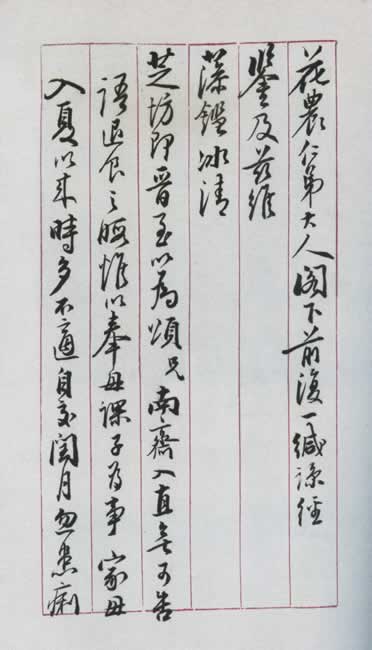 花農仁弟大人閣下前復一緘諒經
鑒及茲維
藻鑑冰清
芝坊即晉至以為頌兄南齋入直無可告
語退食之暇惟以奉母課子為事家母
入夏以來時多不適自交閏月忽患痢